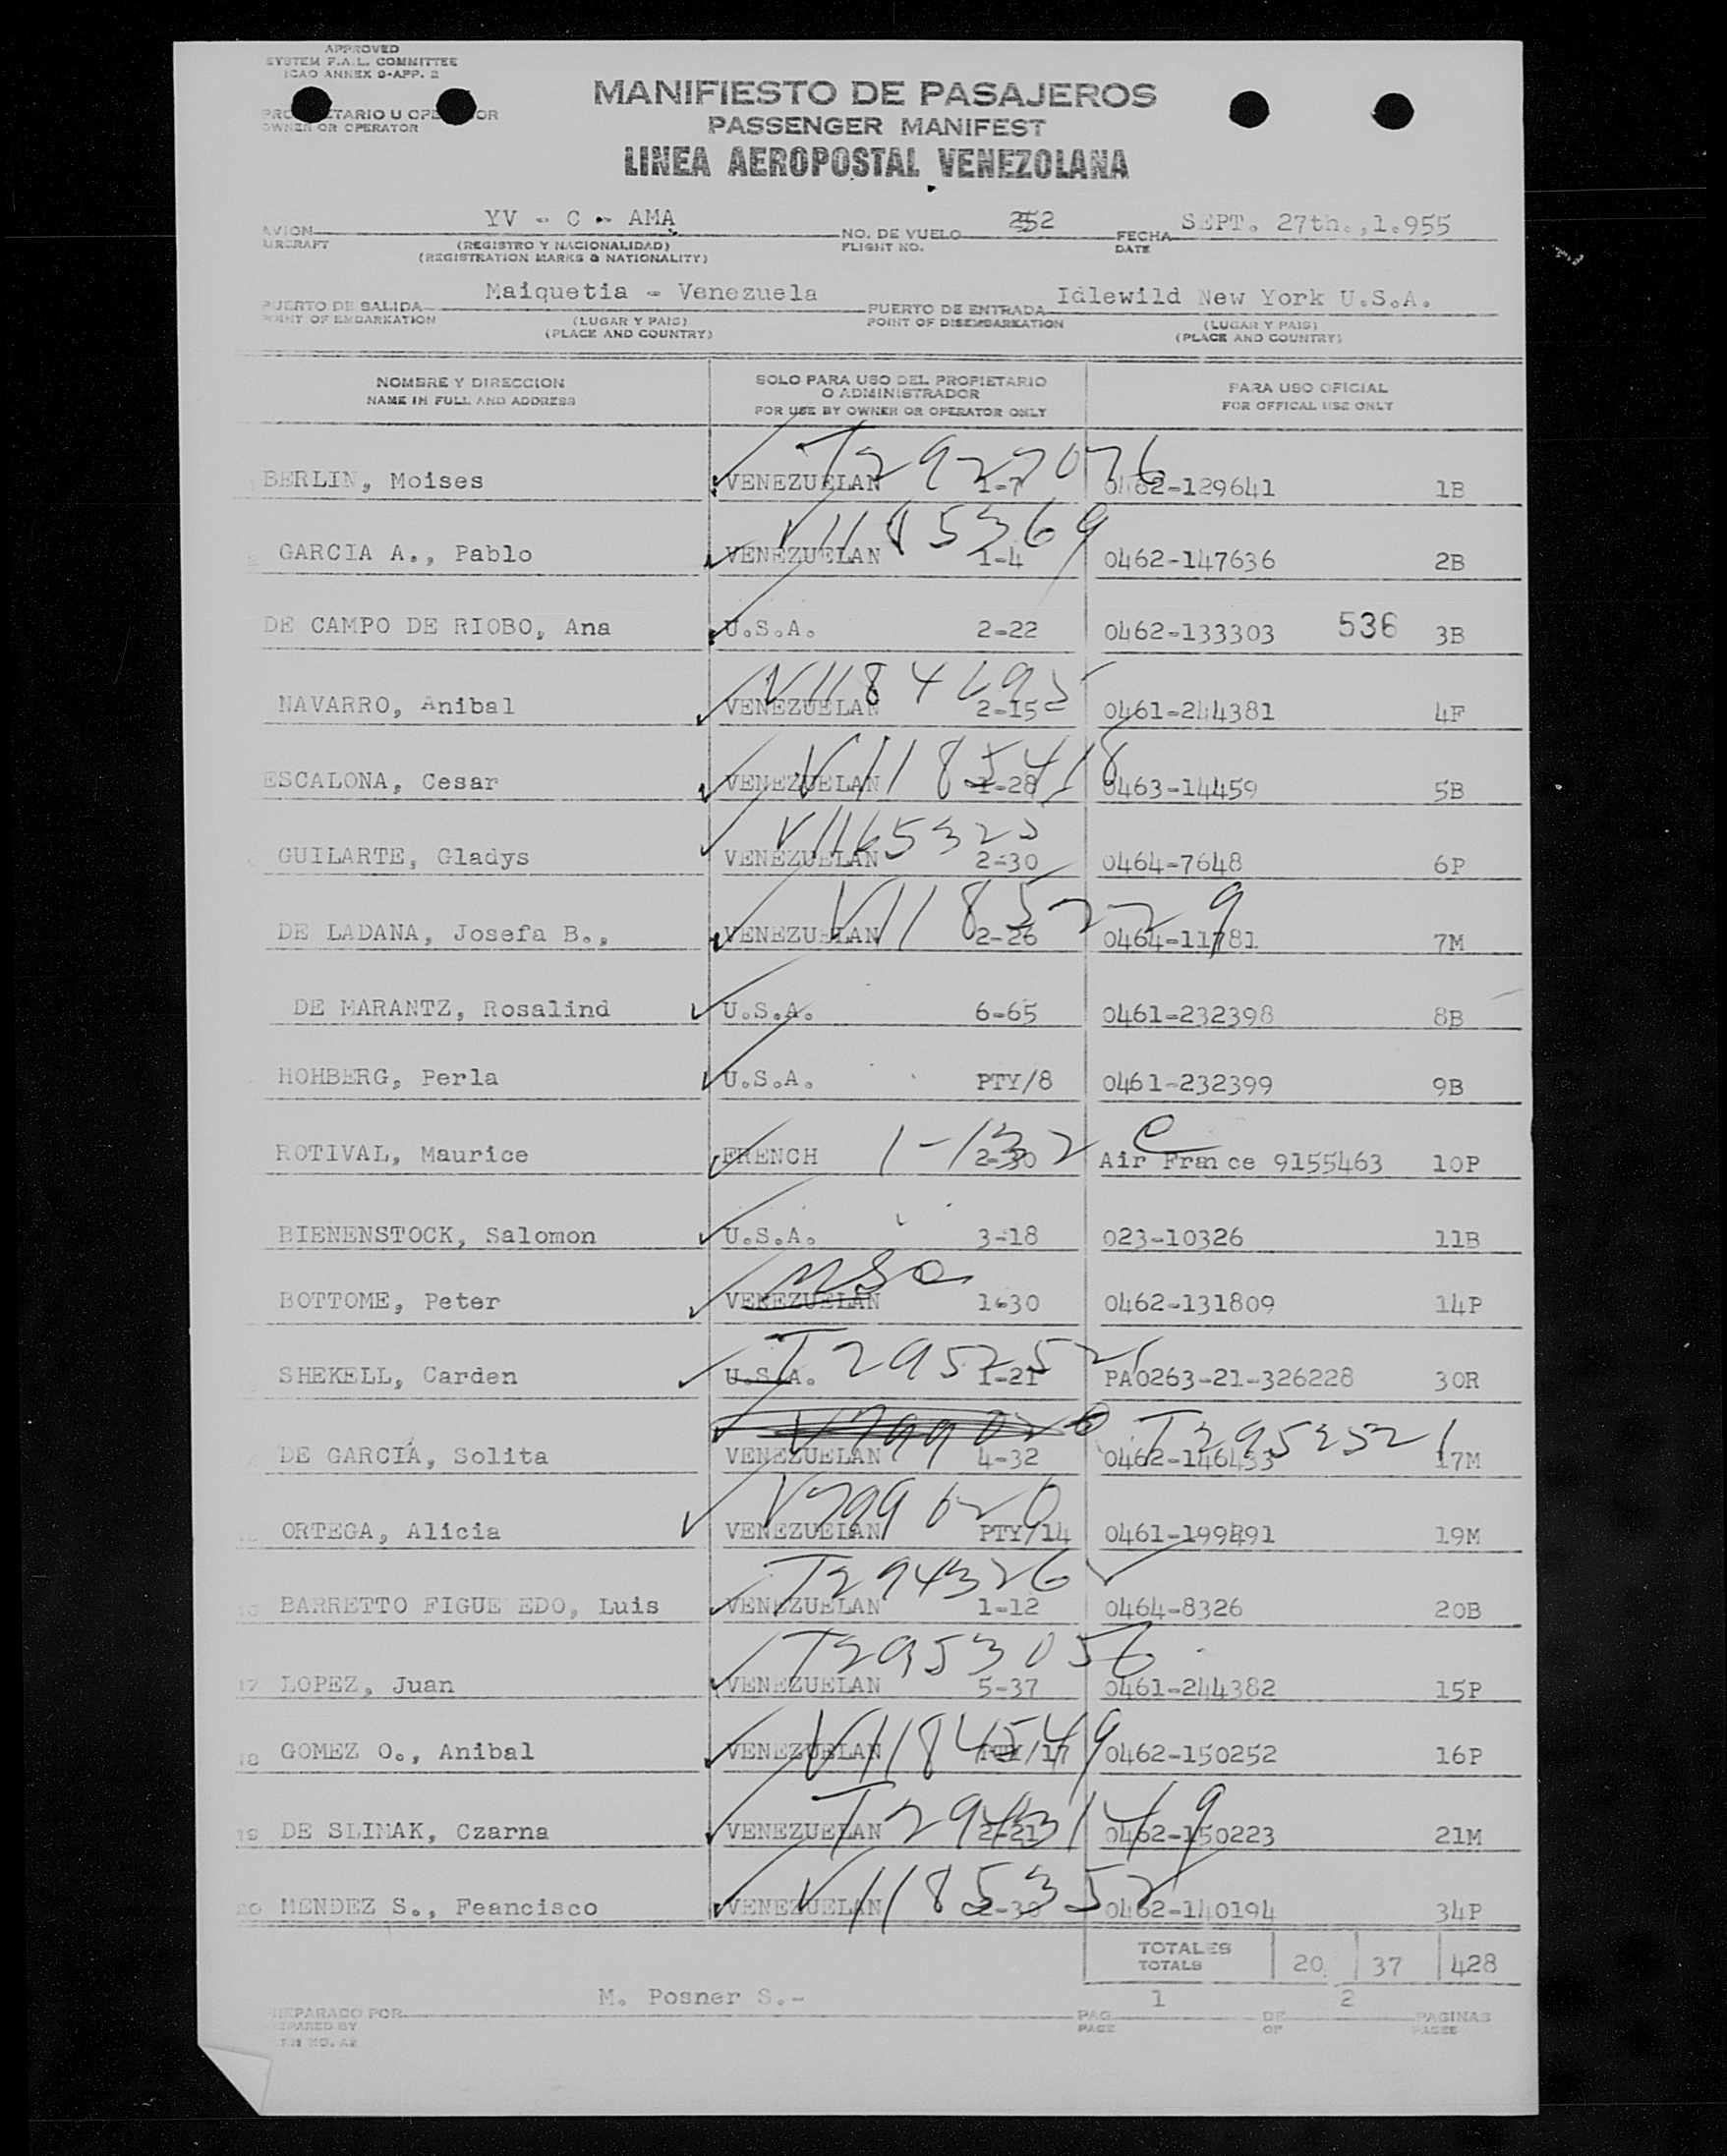 APPROVED
SYSTEM F.A.L. COMMITTEE
ICAO ANNEX 9-APP. 2
MANIFIESTO DE PASAJEROS
PASSENGER MANIFEST
OWNER OR OPERATOR
LINEA AEROPOSTAL VENEZOLANA
AVION YV - C - AMA NO. DE VUELO FECHA SEPT. 27th.,1.955
AIRCRAFT (REGISTRO Y NACIONALIDAD) FLIGHT NO. DATE
(REGISTRATION MARKS & NATIONALITY)
PUERTO DE SALIDA Maiquetia - Venezuela PUERTO DE ENTRADA Idlewild New York U.S.A.
POINT OF EMBARKATION (LUGAR Y PAIS) POINT OF DISEMBARKATION (LUGAR Y PAIS)
(PLACE AND COUNTRY) (PLACE AND COUNTRY)
NOMBRE Y DIRECCION SOLO PARA USO DEL PROPIETARIO O ADMINISTRADOR PARA USO OFICIAL
NAME IN FULL AND ADDRESS FOR USE BY OWNER OR OPERATOR ONLY FOR OFFICAL USE ONLY
T2927076
BERLIN, Moises VENEZUELAN 1-7 0462-129641 1B
V1185369
GARCIA A., Pablo VENEZUELAN 1-4 0462-147636 2B
DE CAMPO DE RIOBO, Ana U.S.A. 2-22 0462-133303 536 3B
NAVARRO, Anibal VENEZUELAN 2-15 0461-244381 4F
V1185418
ESCALONA, Cesar VENEZUELAN 1-28 0463-14459 5B
GUILARTE, Gladys VENEZUELAN 2-30 0464-7648 6P
V1185229
DE LADANA, Josefa B., VENEZUELAN 2-26 0464-11781 7M
DE MARANTZ, Rosalind U.S.A. 6-65 0461-232398 8B
HOHBERG, Perla U.S.A. PTY/8 0461-232399 9B
ROTIVAL, Maurice FRENCH 2-30 1-132 Air France 9155463 10P
BIENENSTOCK, Salomon U.S.A. 3-18 023-10326 11B
USA
BOTTOME, Peter VENEZUELAN 1-30 0462-131809 14P
T2952521
SHEKELL, Carden U.S.A. 1-21 PA0263-21-326228 30R
T2952521
DE GARCIA, Solita VENEZUELAN 4-32 0462-146433 17M
V799020
ORTEGA, Alicia VENEZUELAN PTY/14 19M
T294326
BARRETTO FIGUE EDO, Luis VENEZUELAN 1-12 0464-8326 20B
T2953056
17 LOPEZ, Juan VENEZUELAN 5-37 0461-244382 15P
V1184549
18 GOMEZ O., Anibal VENEZUELAN PTY/17 0462-150252 16P
T2943149
19 DE SLIMAK, Czarna VENEZUELAN 2-21 0462-150223 21M
V1185352
20 MENDEZ S., Feancisco VENEZUELAN 2-30 0462-140194 34P
TOTALES
TOTALS 20 37 428
PREPARADO POR M. Posner S.- PAG. 1 DE 2 PAGINAS
PREPARED BY PAGE OF PAGES